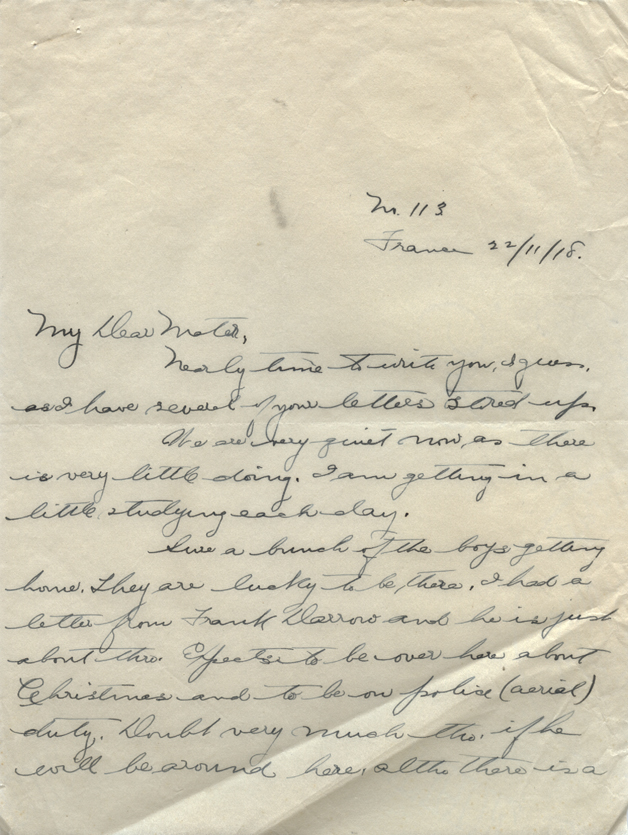 No. 113
France 22/11/18.
My Dear Mater,
Nearly time to write you, I guess,
as I have several of your letters stored up.
We are very quiet now, as there
is very little doing. I am getting in a
little studying each day.
Sure a bunch of the boys getting
home. They are lucky to be there. I had a
letter from Frank Darrow and he is just
about thro. Expects to be over here about
Christmas and to be on police (aerial)
duty. Doubt very much tho. if he
will be around here, altho there is a